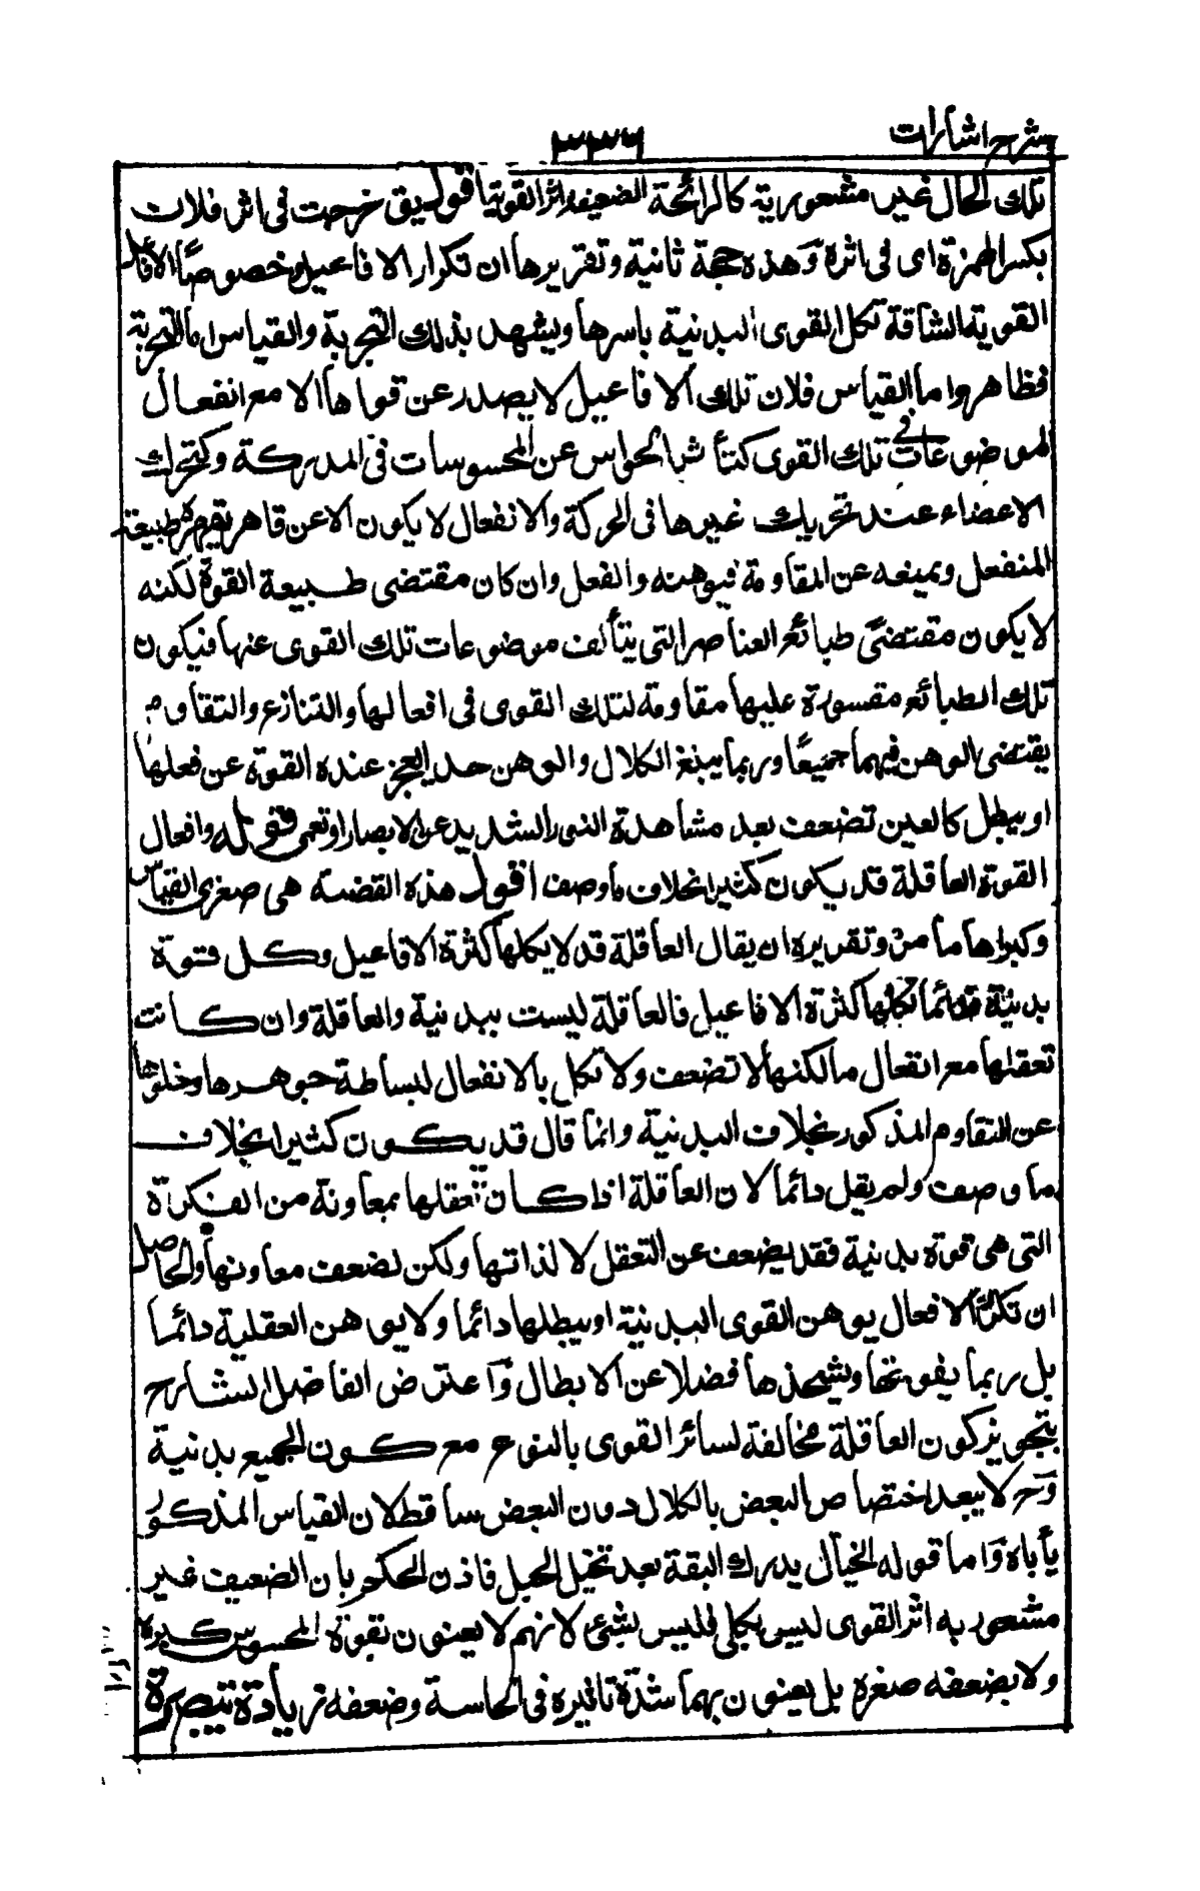 شرح اشارات
٣٣٦
تلك الحال غير مشعور به كالرائحة الضعيفة اثر القوية اقول يق خرجت فى اثر فلان
بكسر الهمزة اى فى اثره وهذه حجة ثانية وتقريرها ان تكرار الافاعيل وخصوصًا الافاعيل
القوية الشاقة تكل القوى البدنية باسرها ويشهد بذلك التجربة والقياس اما التجربة
فظاهر واما القياس فلان تلك الافاعيل لا يصدر عن قواها الا مع انفعال
لموضوعات تلك القوى كتأثر الحواس عن المحسوسات فى المدركة وكتحرك
الاعضاء عند تحريك غيرها فى الحركة والانفعال لا يكون الا عن قاهر يقهر طبيعة
المنفعل ويمنعه عن المقاومة فيوهنه والفعل وان كان مقتضى طبيعة القوة لكنه
لا يكون مقتضىً طبائع العناصر التى يتألف موضوعات تلك القوى عنها فيكون
تلك الطبائع مقسورة عليها مقاومة لتلك القوى فى افعالها والتنازع والتقاوم
يقتضى الوهن فيهما جميعًا وربما يبلغ الكلال والوهن حد العجز عنده القوة عن فعلها
او يبطل كالعين تضعف بعد مشاهدة النور الشديد عن الابصار او تعمى قوله وافعال
القوة العاقلة قد يكون كثيرا بخلاف ما وصف اقول هذه القضية هى صغرى القياس
وكبراها ما مر وتقريره ان يقال العاقلة قد لا يكلها كثرة الافاعيل وكل قوة
بدنية فدائما تكلها كثرة الافاعيل فالعاقلة ليست ببدنية والعاقلة وان كانت
تعقلها مع انفعال ما لكنها لا تضعف ولا تكل بالانفعال لبساطة جوهرها وخلوها
عن التقاوم المذكور بخلاف البدنية وانما قال قد يكون كثيرا بخلاف
ما وصف ولم يقل دائما لان العاقلة اذا كان تعقلها بمعاونة من الفكرة
التى هى قوة بدنية فقد يضعف عن التعقل لا لذاتها ولكن لضعف معاونها والحاصل
ان تكرر الافعال يوهن القوى البدنية او يبطلها دائما ولا يوهن العقلية دائما
بل ربما يقويها ويشحذها فضلا عن الابطال واعترض الفاضل الشارح
بتجويز كون العاقلة مخالفة لسائر القوى بالنوع مع كون الجميع بدنية
وح لا يبعد اختصاص البعض بالكلال دون البعض ساقط لان القياس المذكور
يأباه واما قوله الخيال يدرك البقة بعد تخيل الجبل فاذن الحكم بان الضعيف غير
مشعور به اثر القوى ليس بكلى فليس بشئ لانهم لا يعنون بقوة المحسوس كبره
ولا بضعفه صغره بل يعنون بهما شدة تاثيره فى الحاسة وضعفه زيادة تبصرة